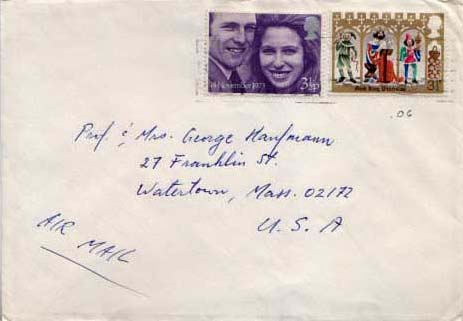 14 November 1973 3½p
Good King Wenceslas
.06
Prof. & Mrs. George Hanfmann
27 Franklin St.
Watertown, Mass. 02172
U. S. A
AIR
MAIL